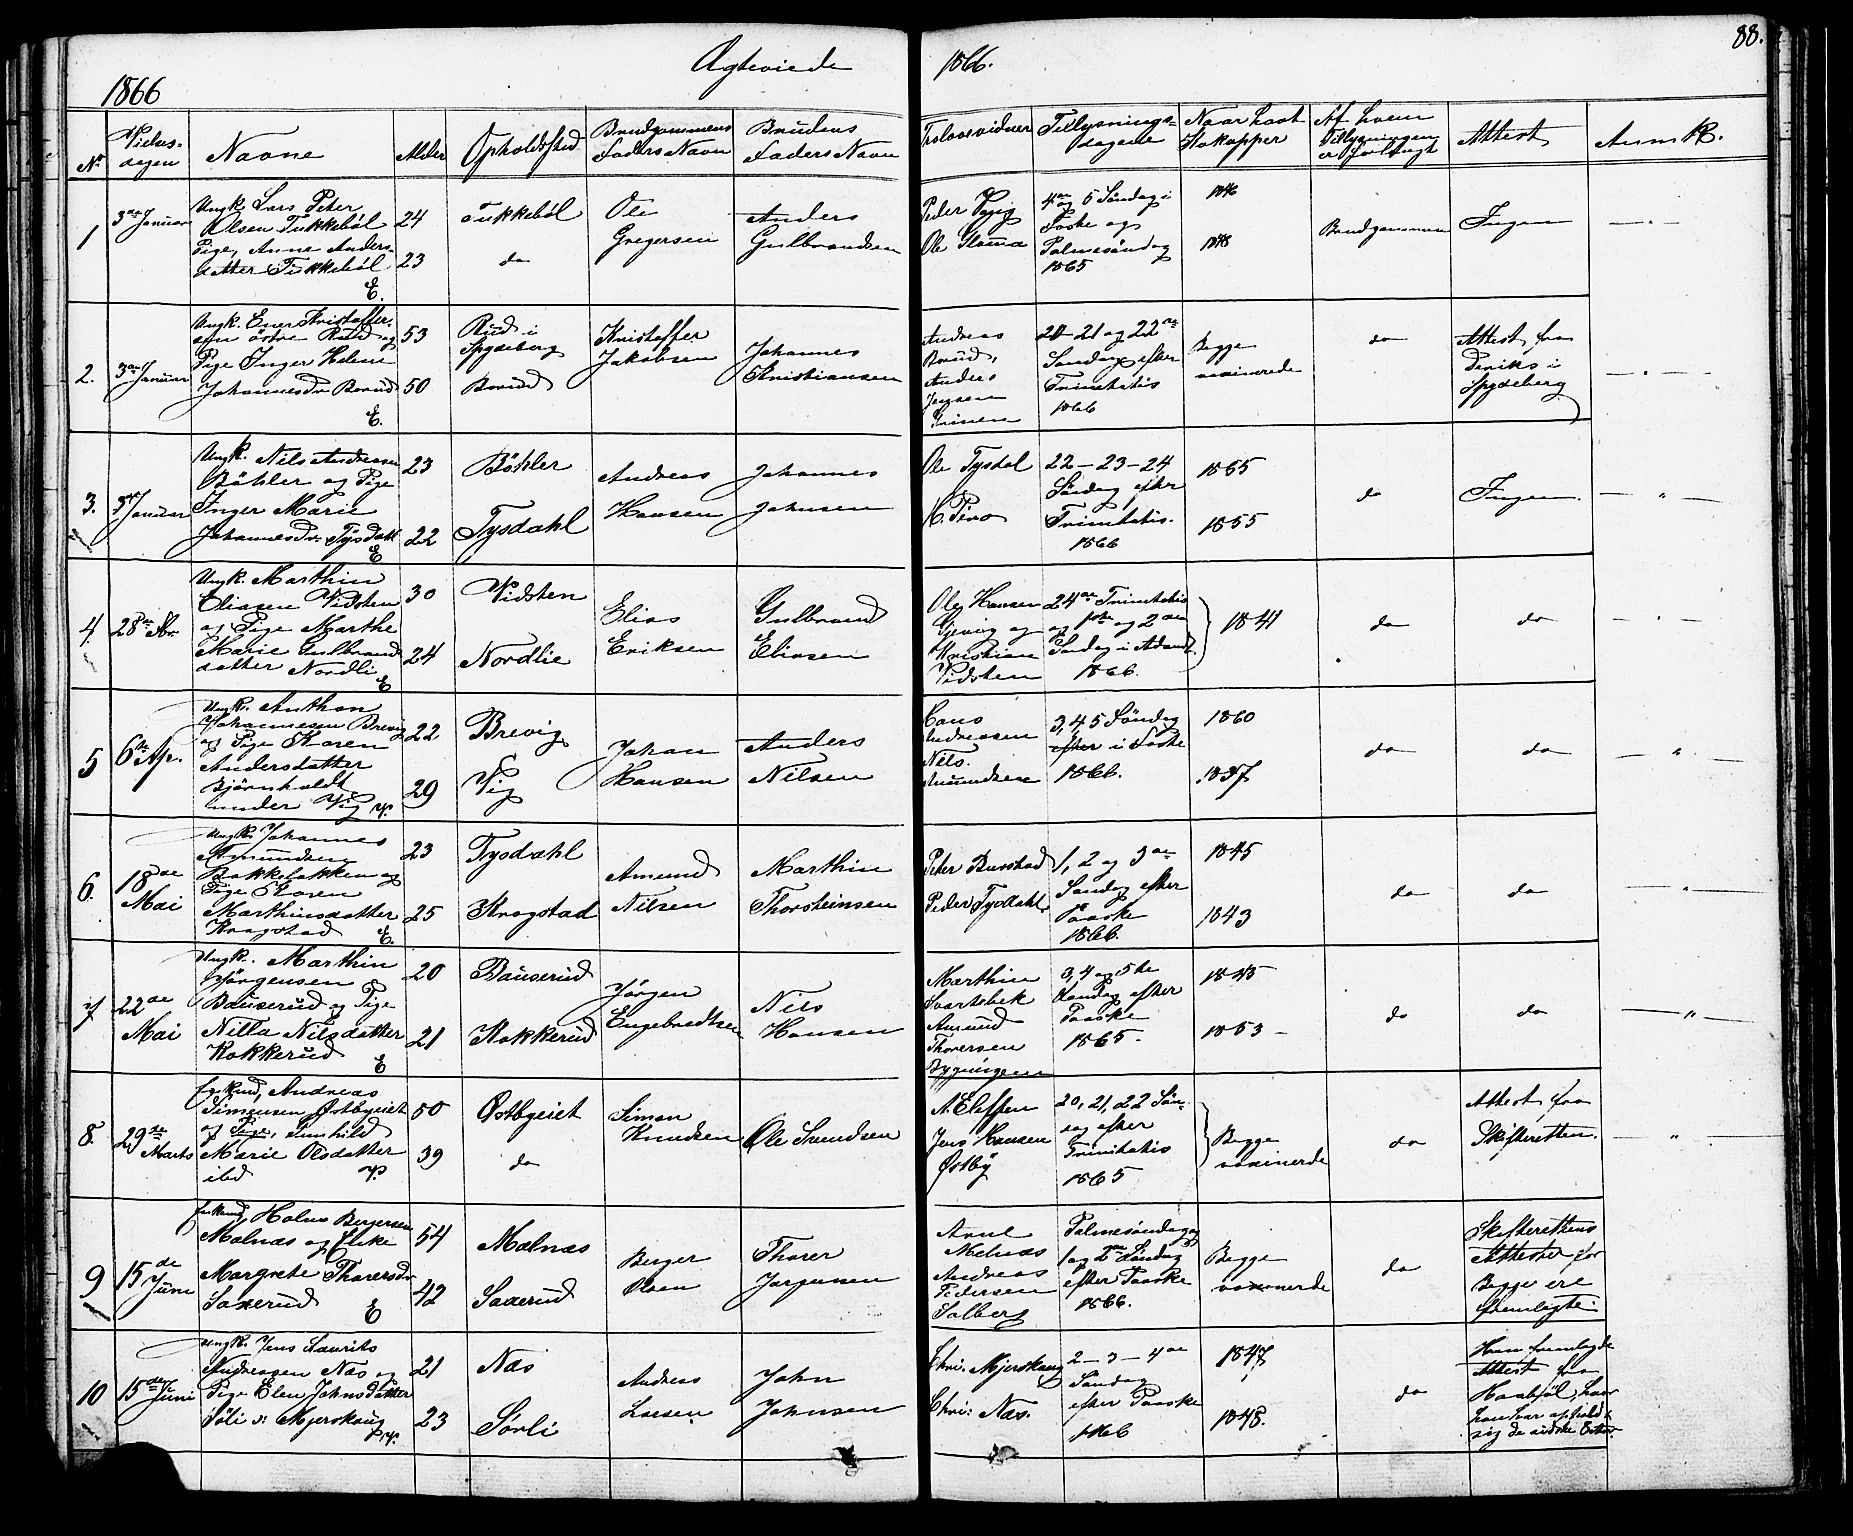 88.
Ægteviede 1866.
1866
No
Vielses-
dagen
Navne
Alder
Opholdssted
Brudgommens
Faders Navn
Brudens
Faders Navn
Trolovervidner
Tillysnings-
dagene
Naar havt
Kokopper
Af hvem
Tillysningen
er forlangt
Attest
Anmk.
1
3die Januar
Ungk. Lars Peter
Olsen Tukkebøl
Pige, Anne Anders-
datter Tukkebøl
E.
24
23
Tukkebøl
do
Ole
Gregersen
Anders
Gulbrandsen
Peder
Ole
4de og 5 Søndag i
Faste og
Palmesøndag
1865
1846
1848
Brudgommen
Ingen
2.
3die Januar
Ungk. Ener Kristoffer-
sen østre Rud og
Pige Inger Helene
Johannesdr Borud
E.
53
50
Rud i
Spydeberg
Borud
Kristoffer
Jakobsen
Johannes
Kristiansen
Andreas
Borud,
Anders
Jensen
Grinen
20-21 og 22de
Søndag efter
Trinitatis
1866
Begge
vaxinerede
do
Attest fra
Deriks i
Spydeberg
3.
3die Januar
Ungk. Nils Andreasen
Bøhler og Pige
Inger Marie
Johannesdr. Tysdahl
E
23
22
Bøhler
Tysdahl
Andreas
Hansen
Johannes
Johnsen
Ole Tysdal
22-23-24
Søndag efter
Trinitatis.
1866
1865
1855
do
Ingen.
"
4
28de
Ungk. Marthin
Eliasen Vidsten
og Pige Marthe
Marie Gulbrands
datter Nordli
E
30
24
Vidsten
Nordlie
Elias
Eriksen
Gulbrand
Eliasen
Ole Hansen
og
Kristian
Vidsten
24de Trinitatis
og 1ste og 2den
Søndag i Advent
1866.
1841
do
do
5
6te Ap.
Ungk. Anthon
Johannesen Brevig
og Pige Karen
Andersdatter
Bjørnholdt
under Vig
V.
22
29
Brevig
Vig
Johan
Hansen
Anders
Nilsen
Andreassen
Nils
Amundsen
3,4,5 Søndag
efter i Faste
1866.
1860
1837
do
do
"
6.
18de
Mai
Ungk. Johannes
Amundsen
Bakkelakken og
Pige Karen
Marthinsdatter
Kragstad
E.
23
25
Tysdahl
Kragstad
Amund
Nilsen
Marthin
Thorsteinsen
Peter Burstad
Peder Tysdahl
1, 2 og 3de
Søndag efter
Paaske
1866.
1845
1843
do
do
"
7
22de
Mai
Ungk. Marthin
Jørgensen
Bauserud og Pige
Nilla Nilsdatter
Kokkerud
E
20
21
Bauserud
Kokkerud
Jørgen
Engebredtsen
Nils
Hansen
Marthin
Svartebek
Amund
Thoversen
Bygningen
3, 4 og 5te
Søndag efter
Paaske
1865.
1845
1853
do
do
"
8.
29de
Marts
Enkemd, Andreas
Simensen Østbyeiet
og Pige, Gunhild
Marie Olsdatter
ibd
V.
50
39
Østbyeiet
do
Simen
Knudsen
Ole Svendsen
A. Eleffsen
Jens Hansen
Østby
20, 21, 22 Søn-
dag efter
Trinitatis
1865
Begge
vaxinerede
do
Attest fra
Skifteretten.
"
9
15de
Juni
Enkemd, Halvor Bergersen
Malnæs og Enke
Margrete Thoversdr
Saxerud
E
54
42
Malnæs
Saxerud
Berger
Olsen
Thorer
Jørgensen
Arne
Melnæs
Andreas
Pedersen
Solberg
Palmesøndag og
1 og 2den Søndag
efter Paaske
1866.
Begge
vaxinerede
do
Skifterettens
Attester for
Begge ere
fremlagte.
10
15de Juni
Ungk. Jens Laurits
Andreasen Næs og
Pige Elen Johnsdatter
Søli v: Mjerskaug
V.
21
23
Næs
Sørli
Andreas
Larsen
John
Johnsen
Chri. Mjerskaug
Chri: Næs.
2-3-4de
Søndag
efter Paaske
1866
1847
1848.
do
Han fremlagde
Attest fra
Haabøl, hvor
han har opholdt
sig de sidste